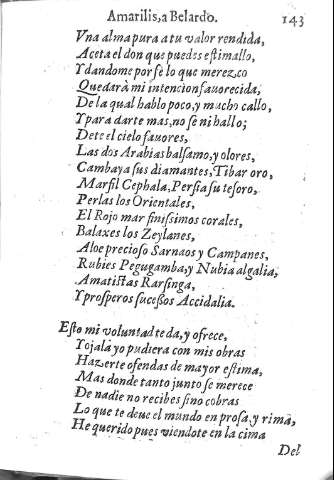 Amarilis, a Belardo. 143
Vna alma pura a tu valor rendida,
Aceta el don que puedes estimallo,
Y dandome por fè lo que merezco
Quedarà mi intencion fauorecida;
De la qual hablo poco, y mucho callo,
Y para darte mas, no se ni hallo;
Dete el cielo fauores,
Las dos Arabias balsamo, y olores,
Cambaya sus diamantes, Tibar oro,
Marfil Cephala, Persia tu tesoro,
Perlas los Orientales,
El Rojo mar finissimos corales,
Balaxes los Zeylanes,
Aloe precioso Sarnaos y Campanes,
Rubies Pegugamba, y Nubia algalia,
Amatistas Rarsinga,
Y prosperos sucessos Accidalia.
Esto mi voluntad te da, y ofrece,
Y ojalà yo pudiera con mis obras
Hazerte ofendas de mayor estima,
Mas donde tanto junto se merece
De nadie no recibes sino cobras
Lo que te deue el mundo en prosa, y rima,
He querido pues viendote en la cima
Del